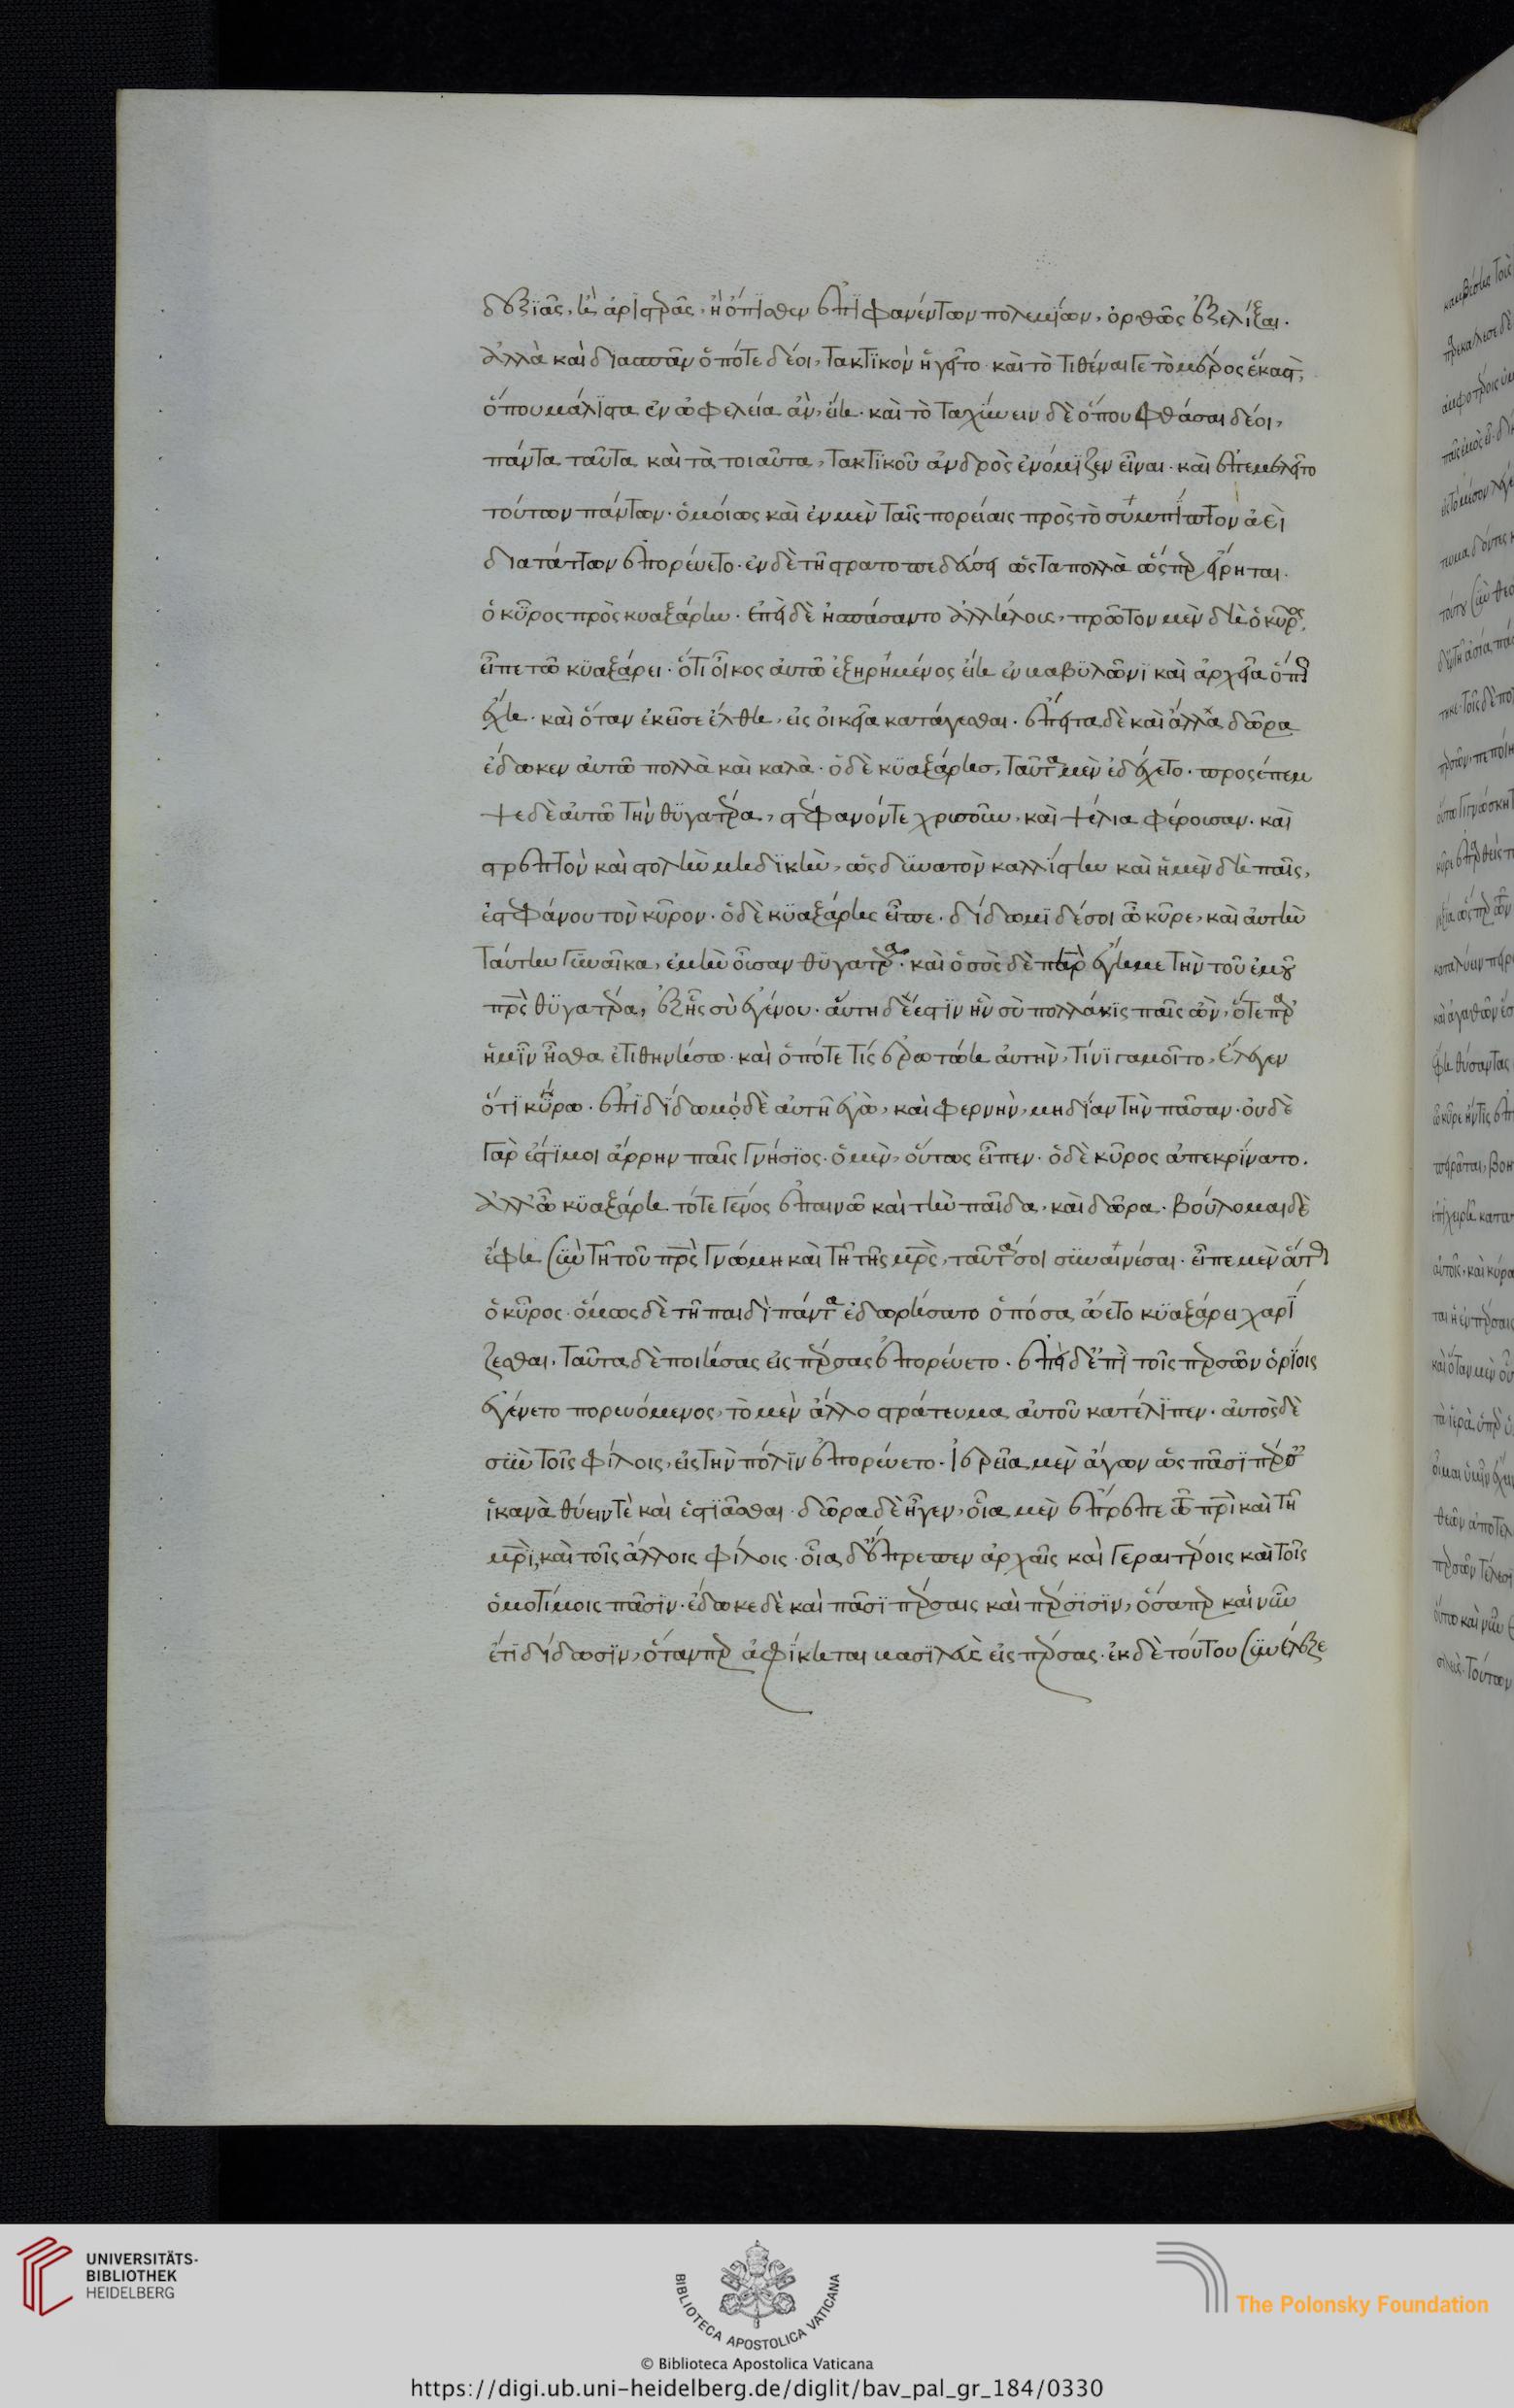 δεξιᾶς, ἢ ἀριστερᾶς, ἢ ὄπισθεν ἐπιφανέντων πολεμίων, ὀρθῶς ἐξελίξαι.
ἀλλὰ καὶ διασπᾶν ὁπότε δέοι, τακτϊκὸν ἡγεῖτο καὶ τὸ τιθέναι γε τὸ μέρος ἕκαστ,
ὅπου μάλϊστα ἐν ὠφελεία ἂν, εἴη. καὶ τὸ ταχύνειν δὲ ὅπου φθάσαι δέοι,
πάντα ταῦτα καὶ τὰ τοιαῦτα, τακτϊκοῦ ἀνδρὸς ἐνόμϊζεν εἶναι. καὶ ἐπεμελεῖτο
τούτων πάντων. ὁμοίως καὶ ἐν μὲν ταῖς πορείαις πρὸς τὸ σύμπῖπτον ἀεὶ
διατάττων ἐπορεύετο. ἐν δὲ τῆ στρατοπεδεύσει ὡς τα πολλὰ ὥς περ εἴρηται.
ὁ κῦρος πρὸς κυαξάρην. ἐπεὶ δὲ ἠσπάσαντο ἀλλήλοις, πρῶτον μὲν δὴ ὁ κῦρος,
εἶπε τῶ κϋαξάρει. ὅτι οἶκος αὐτῶ ἐξηρημένος εἴη ἐν βαβϋλῶνϊ καὶ ἀρχεῖα ὅπως
ἔχη. καὶ ὅταν ἐκεῖσε ἔλθη, εἰς οἰκεῖα κατάγεσθαι. ἔπειτα δὲ καὶ ἄλλα δῶρα
ἔδωκεν αὐτῶ πολλὰ καὶ καλὰ. ὁ δὲ κϋαξάρησ, ταῦτα μὲν ἐδέχετο. προσέπεμ
ψε δὲ αὐτῶ τὴν θϋγατέρα, στέφανόν τε χρυσοῦν, καὶ ψέλια φέρουσαν. καὶ
στρεπτὸν καὶ στολὴν μηδϊκὴν, ὡς δϋνατὸν καλλίστην καὶ ἡ μὲν δὴ παῖς,
ἐστεφάνου τὸν κῦρον. ὁ δὲ κϋαξάρης εἶπε. δίδωμϊ δέ σοι ὦ κῦρε, καὶ αὐτὴν
ταύτην γϋναῖκα, ἐμὴν οὖσαν θϋγατέρα. καὶ ὁ σὸς δὲ πὴρ ἔγημε τὴν τοῦ ἐμοῦ
πρὸς θϋγατέρα, ἐξ ἧς σὺ ἐγένου. αὕτη δέ ἐστϊν ἣν σὺ πολλάκϊς παῖς ὢν, ὅτε παρ
ἡμῖν ἦσθα ἐτιθηνήσω. καὶ ὁπότε τίς ἐρωτώη αὐτὴν, τίνϊ γαμοῖτο, ἔλεγεν
ὅτϊ κύρω. ἐπϊδίδωμϊ δὲ αὐτῆ ἐγὼ, καὶ φερνὴν, μηδίαν τὴν πᾶσαν. οὐδὲ
γὰρ ἐστί μοι ἄρρην παῖς γνήσϊος. ὁ μὲν, οὕτως εἶπεν. ὁ δὲ κῦρος ἀπεκρίνατο.
ἀλλ' ὦ κϋαξάρη τό τε γένος ἐπαινῶ καὶ τὴν παῖδα, καὶ δῶρα. βούλομαι δὲ
ἔφη σὺν τῆ τοῦ πρὸς γνώμη καὶ τῆ τῆς μρὸς, ταῦτά σοι σϋναινέσαι. εἶπε μὲν οὕτως
ὁ κῦρος. ὅμως δὲ τῆ παιδὶ πάντα ἐδωρήσατο ὁπόσα ὤετο κϋαξάρει χαρϊ
ζεσθαι. ταῦτα δὲ ποιήσας εἰς πέρσας ἐπορεύετο. ἐπεὶ δ' ἐπὶ τοῖς περσῶν ὁρίοις
ἐγένετο πορευόμενος, τὸ μὲν ἄλλο στράτευμα αὐτοῦ κατέλϊπεν. αὐτὸς δὲ
σὺν τοῖς φίλοις, εἰς τὴν πόλϊν ἐπορεύετο. ἱερεῖα μὲν ἄγων ὡς πᾶσϊ πέρσαις
ἱκανὰ θύειν τὲ καὶ ἑστϊᾶσθαι. δῶρα δὲ ἦγεν, οἷα μὲν ἔπρεπε τῶ πρὶ καὶ τῆ
μρὶ, καὶ τοῖς ἄλλοις φίλοις. οἷα δ' ἔπρεπεν ἀρχαῖς καὶ γεραιτέροις καὶ τοῖς
ὁμοτίμοις πᾶσϊν. ἔδωκε δὲ καὶ πᾶσϊ πέρσαις καὶ πέρσϊσϊν, ὅσαπερ καὶ νῦν
ἔτϊ δίδωσϊν, ὅτανπερ ἀφίκηται βασϊλεὺς εἰς πέρσας. ἐκ δὲ τούτου σϋνέλεξε
UNIVERSITÄTS-
BIBLIOTHEK
HEIDELBERG
BIBLIOTECA APOSTOLICA VATICANA
The Polonsky Foundation
© Biblioteca Apostolica Vaticana
https://digi.ub.uni-heidelberg.de/diglit/bav_pal_gr_184/0330